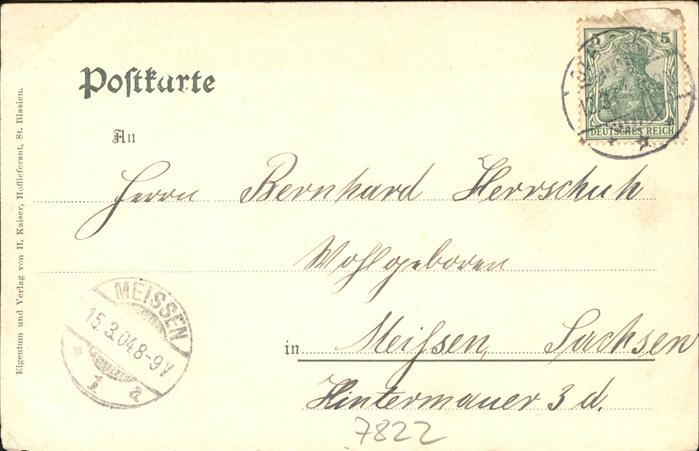 Postkarte
5 5
DEUTSCHES REICH
An
Herrn Bernhard Herrschuh
Wohlgeboren
in Meißen, Sachsen
Hintermauer 3 d.
7822
MEISSEN
15.3.04.8-9V
1 a
Eigentum und Verlag von H. Kaiser, Hoflieferant, St. Blasien.